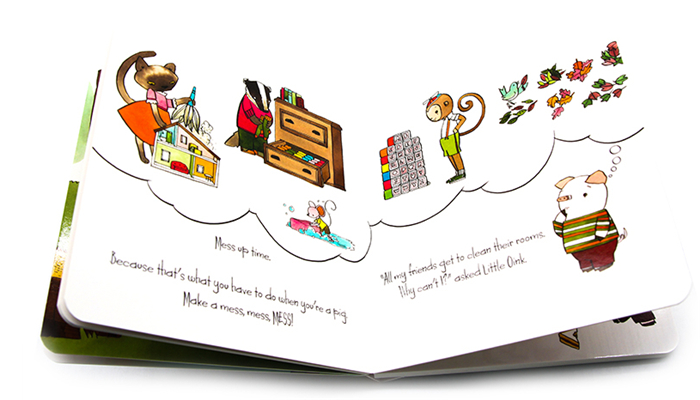 Mess up time.
Because that's what you have to do when you're a pig.
Make a mess, mess, MESS!
"All my friends get to clean their rooms.
Why can't I?" asked Little Oink.